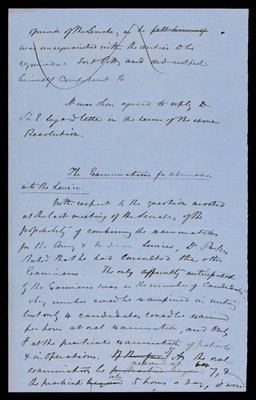 opinion of the Senate, as he felt himself
was unacquainted with the duties Dr he
and did not feel
himself competent to
It was then agreed to reply to
Sir E. Lugard letter in the terms of the above
Resolution.
The Examinations for admission
into the Service.
With respect to the question mooted
at the last meeting of the Senate, of the
of combining the examinations
for the Army & Indian Services, Dr Parkes
stated that he had consulted the other
Examiners. The only difficulty anticipated
by the Examiners was in the number of Candidates
Any number could be examined in writing
but only 4 candidates could be examined
per hour at oral examination, and only
at the practical examination of patients
& in operations. If the oral
examinations be instead of 7, &
the practical at 5 hours a day, it would